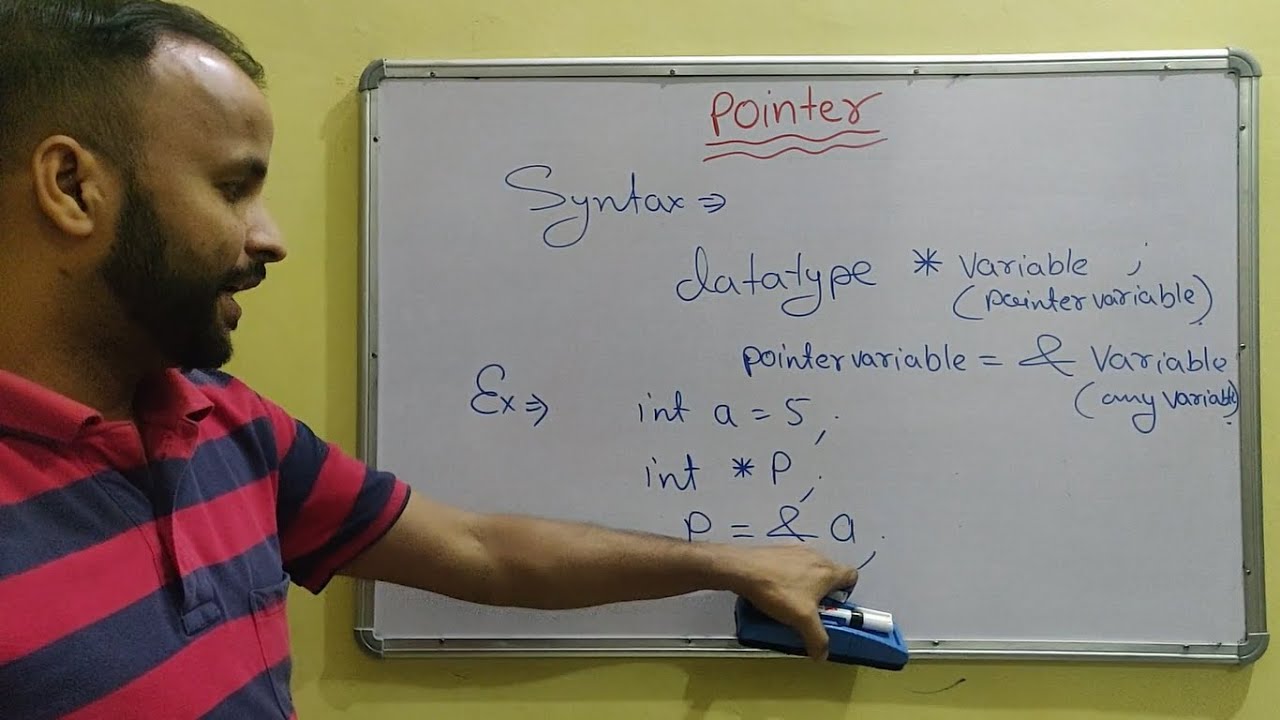 Pointer
Syntax ⇒
datatype * variable ;
(pointer variable)
pointer variable = & variable
(any variable)
Ex ⇒ int a = 5 ;
int * P ;
P = & a ;